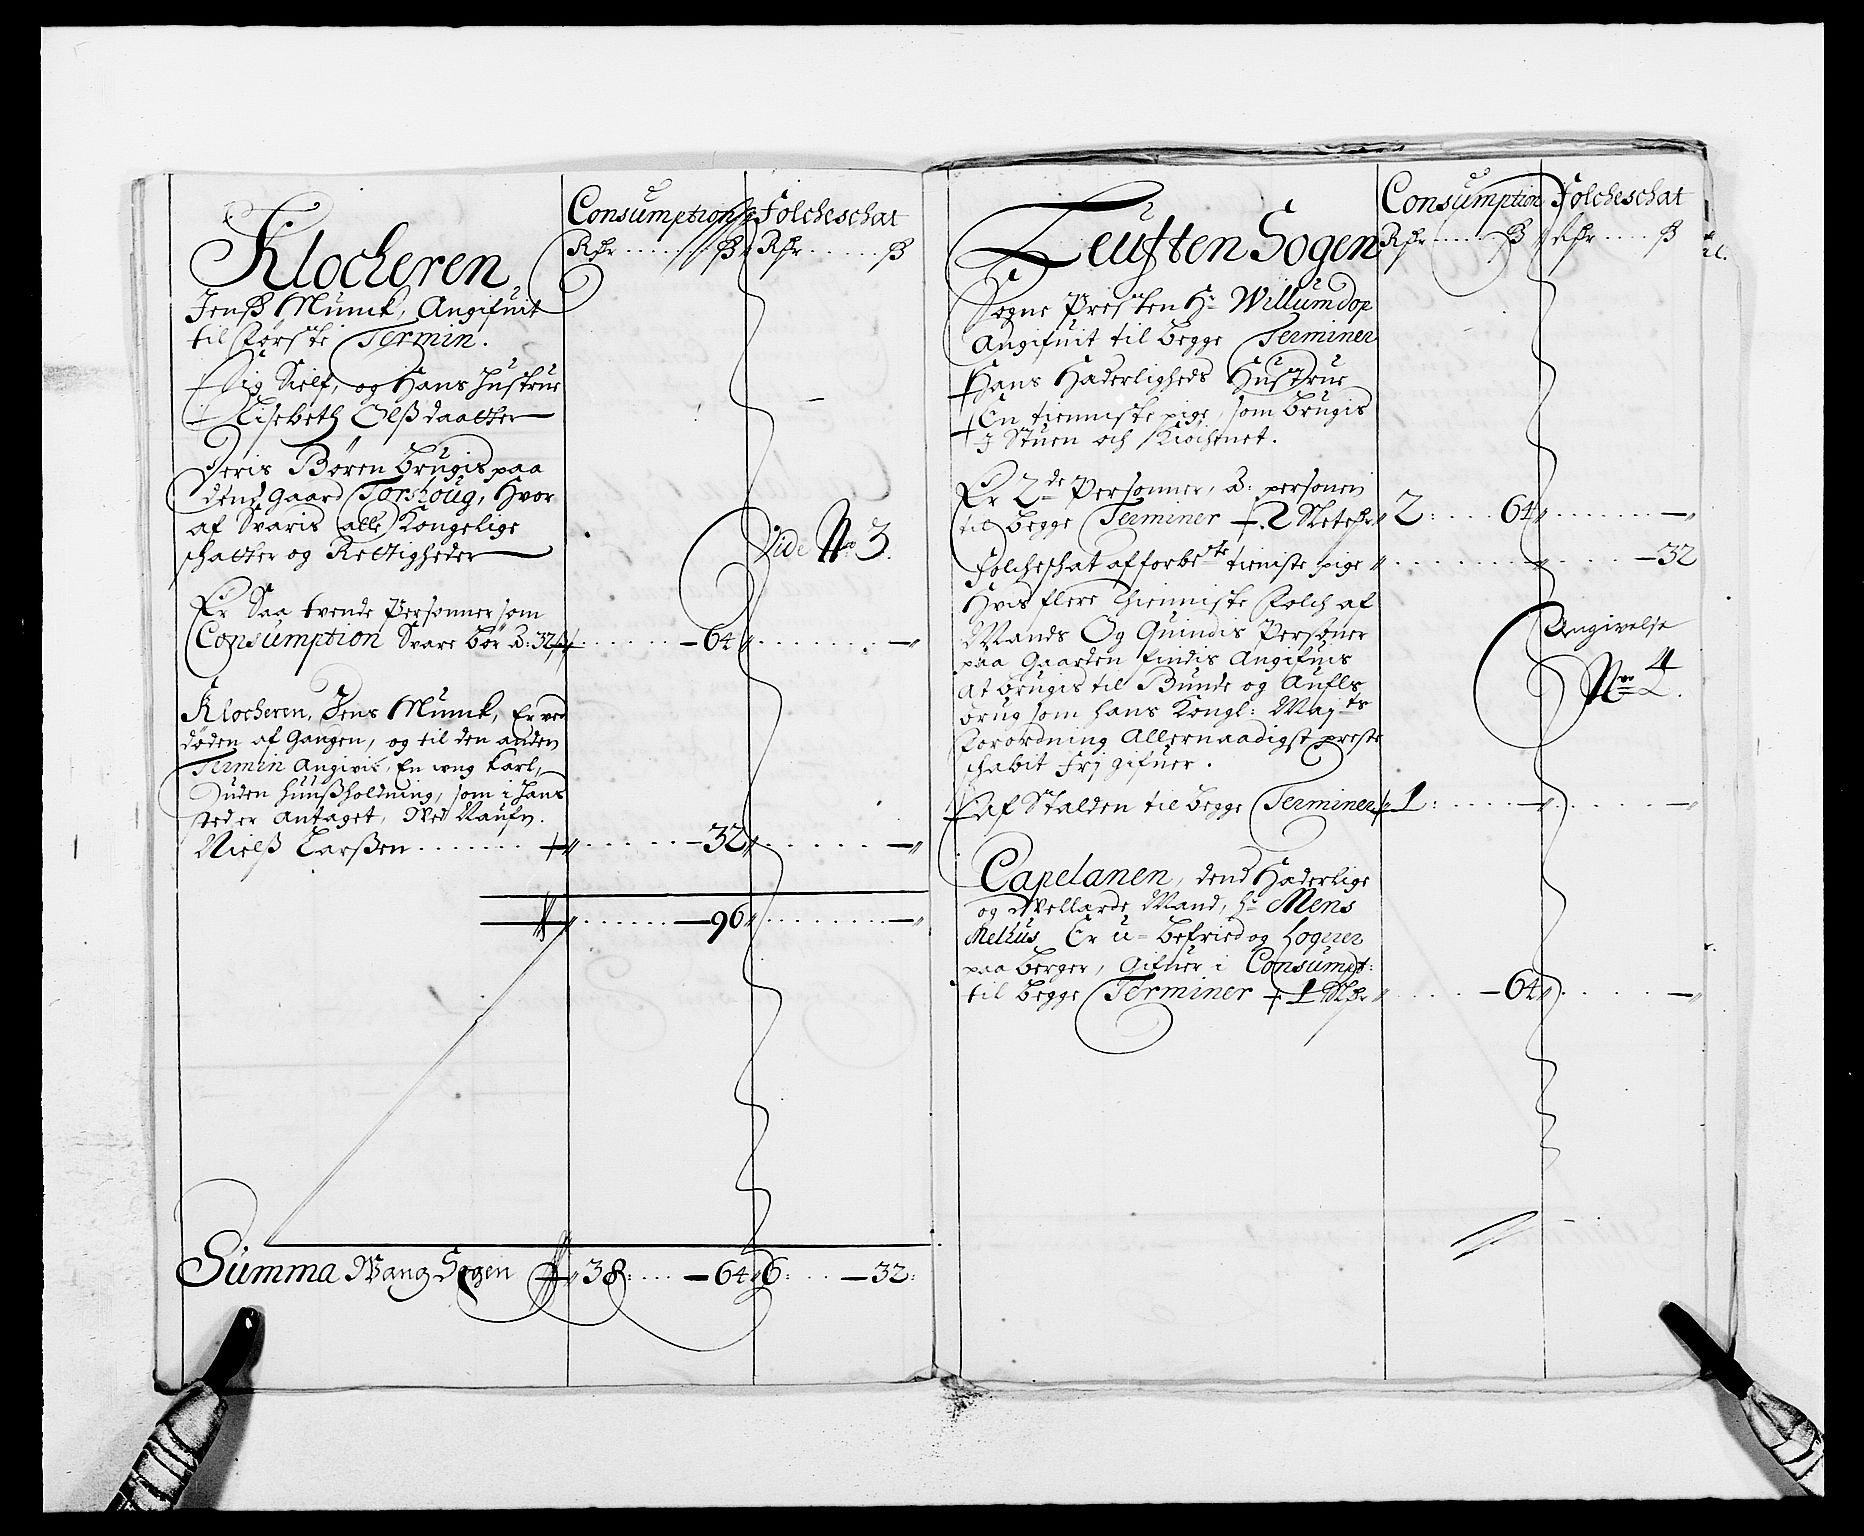 Consumption Folcheschat
Rdr ß Rdr ß
Klocheren
Jenß Munck, Angifuit
til Første Termin.
Sig Sielf, og Hans Hustrue
Lisebeth Olßdaatter
Deris Børen brugis paa
dend gaard Torshoug, Hvor
af Svaris alle Kongelige
schatter og Rettigheder
Vide No 3.
Er Saa tvende Personner som
Consumption Svare bør â: 32 - 64 -
Klocheren, Jens Munck, Er ved
døden af Gangen, og til den anden
Termin Angivis, En ung karl,
uden huußholdning, som i Hans
sted er Antaget, Ved Naufn.
Nielß Larßen - 32 -
- 96 -
Summa Wang Sogen 38: - 64 6: - 32:
Consumption Folcheschat
Rdr ß Rdr ß
Leuften Sogen
Sogne Presten Hr Willum dop
Angifuit til begge Terminer
Hans Haderligheds Hustrue
En tienniste pige, som brugis
J Stuen och Kiøchenet.
Er 2de Personner, â: personen
til begge Terminer 2 Sletedr 2: 64 -
Folcheschat af forbete tieniste pige - - 32
Hvis flere thienniste Folch af
Mands Og Quindis Personer
paa Gaarden findis Angifuis
at brugis til Bunde og Aufls
brug som hans Kongl: Mayts
Forordning Allernaadigst
Frj gifuer.
Angivelse
No 4
Af Stalden til begge Terminer 1: - -
Capelanen, dend Haderlige
og Wellærde Mand, hr Mens
Melhus Er u-befried og Logerer
paa Berger, Gifuer i Consumpt:
til begge Terminer 1 Sldr - 64 -